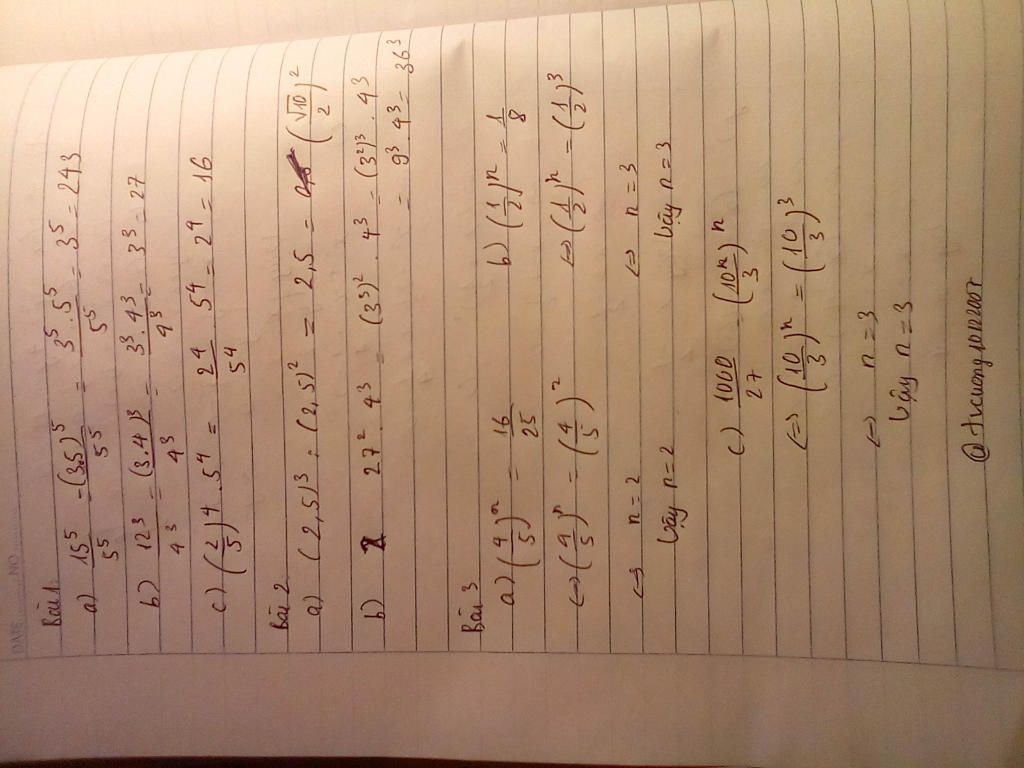 DATE........NO..........
Bài 1.
a) 15⁵/5⁵ = (3.5)⁵/5⁵ = 3⁵.5⁵/5⁵ = 3⁵ = 243
b) 12³/4³ = (3.4)³/4³ = 3³.4³/4³ = 3³ = 27
c) (2/5)⁴.5⁴ = 2⁴/5⁴ 5⁴ = 2⁴ = 16
Bài 2
a) (2,5)³ : (2,5)² = 2,5 = (√10/2)²
b) 27² . 4³ = (3³)² . 4³ = (3²)³ . 4³
= 9³. 4³ = 36³
Bài 3
a) (4/5)ⁿ = 16/25
⇔ (4/5)ⁿ = (4/5)²
⇔ n = 2
Vậy n = 2
b) (1/2)ⁿ = 1/8
⇔ (1/2)ⁿ = (1/2)³
⇔ n = 3
Vậy n = 3
c) 1000/27 = (10/3)ⁿ
⇔ (10/3)ⁿ = (10/3)³
⇔ n = 3
Vậy n = 3